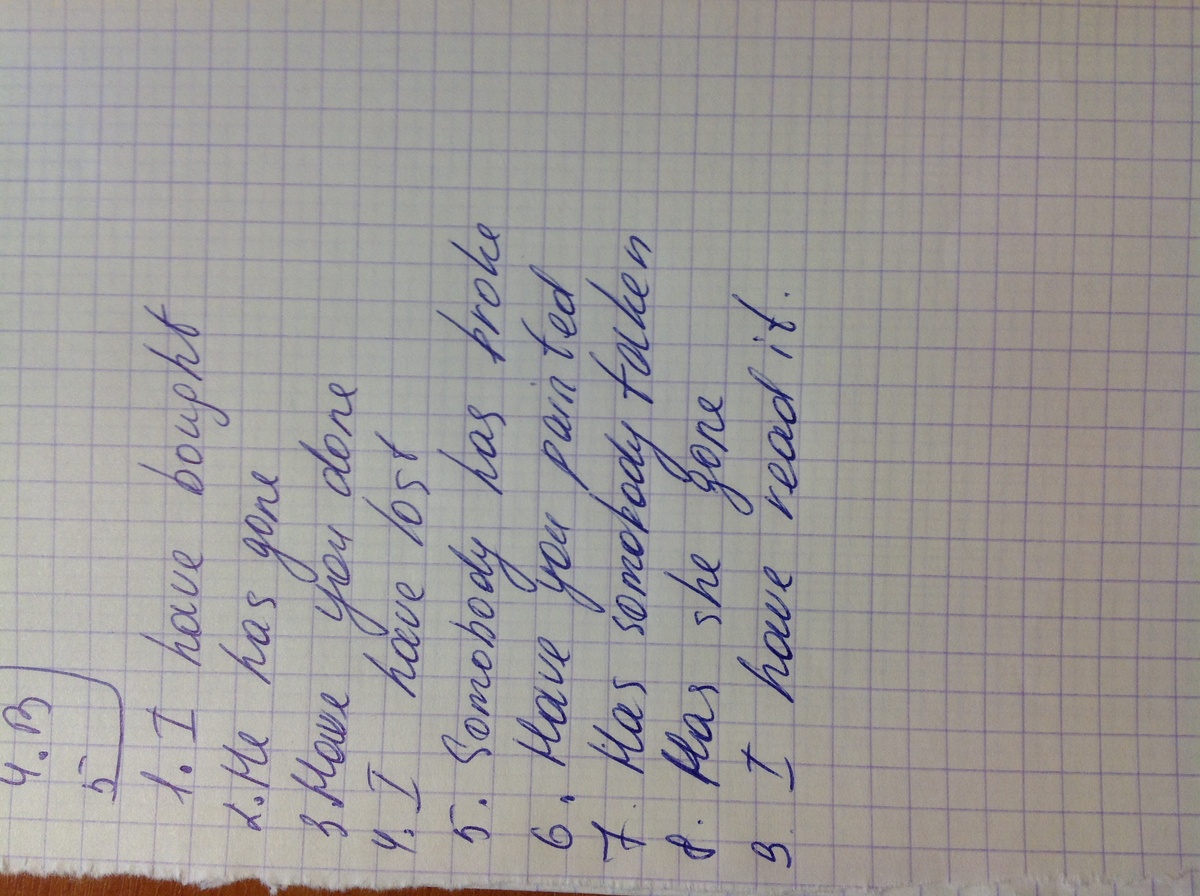 4.B
5
1. I have bought
2. He has gone
3. Have you done
4. I have lost
5. Somobody has broke
6. Have you painted
7. Has somobody taken
8. Has she gone
9. I have read it.